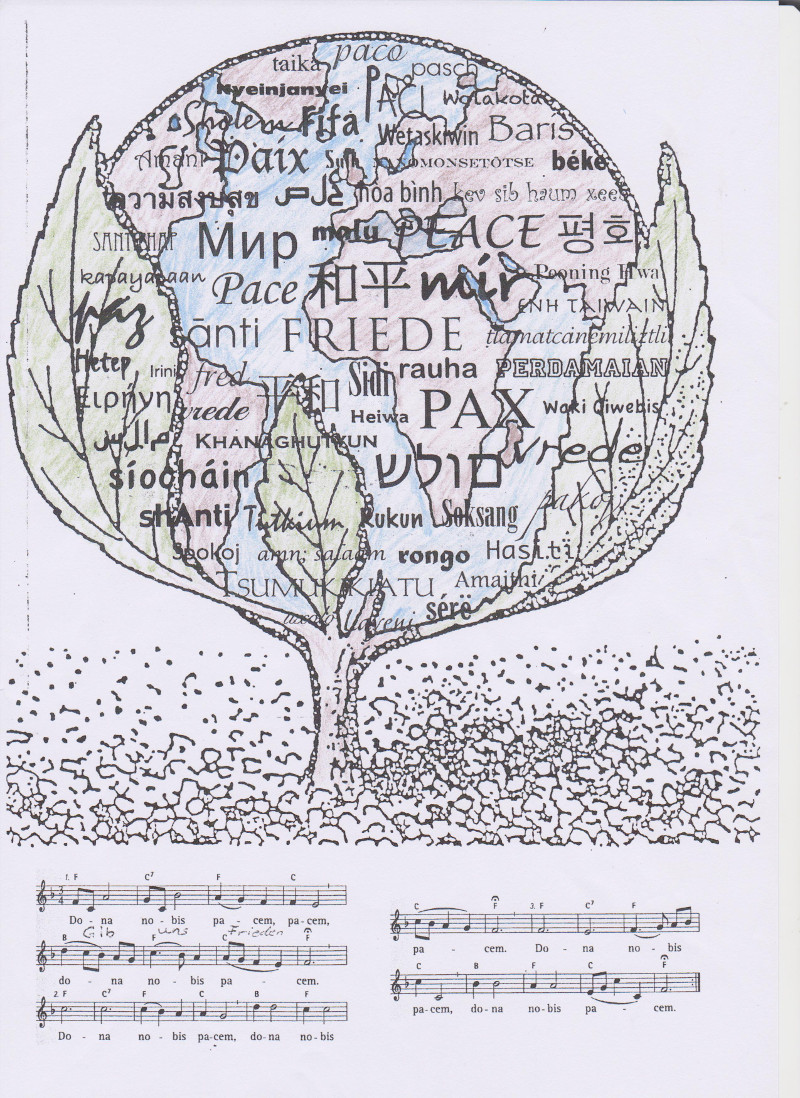 taika paco
pasch
Kyeinjanyei PACI Wolakota
Sholem Fifa Wetaskiwin Baris
Amani Paix Sulh NANOMONSETÔTSE béke
ความสงบสุข hòa bình kev sib haum xeeb
SANTIPHAP Мир malu PEACE 평화
kapayapaan Pace 和平 mír Pooning Hwa
paz ÉNH TAIWAIN
sānti FRIEDE tlamatcanemiliztli
Hetep Irini fred Sidi rauha PERDAMAIAN
Ειρήνη vrede 平和 Heiwa PAX Waki Qiwebis
KHANAGHUTYUN vrede
síocháin שלום
pakoj
shAnti Tutkium Rukun Soksang
Spokoj amn; salaam rongo Hasiti
TSUMUKIKIATU Amaithi
Layeni sérë
1. F C⁷ F C
Do - na no - bis pa - cem, pa-cem,
Gib uns Frieden
B F C F
do - na no - bis pa - cem.
2. F C⁷ F C A B D F C
Do - na no - bis pa-cem, do-na no-bis
C F 3. F C⁷ F
pa - cem. Do - na no - bis
C B F C F
pa-cem, do-na no-bis pa - cem.